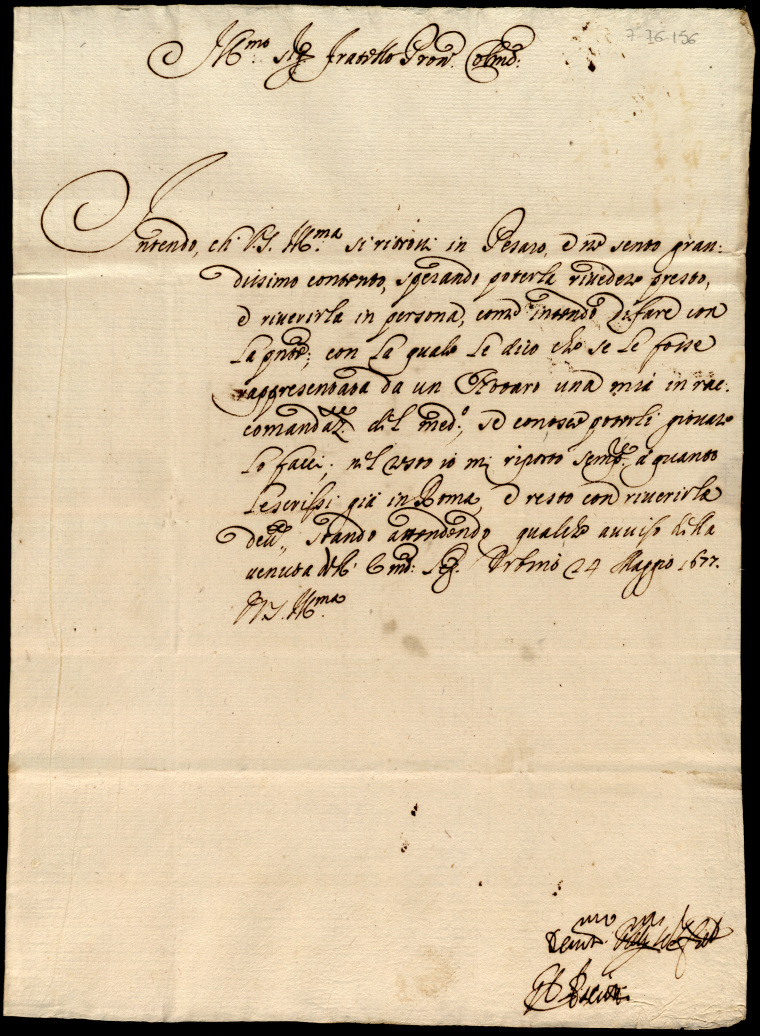 7-76-156
Ill.mo Sig.r Fratello Pron. Colmo:
Intendo, ch' V.S. Ill.ma si ritrovi in Pesaro, e ne sento gran-
dissimo contento, sperando poterla rivedere presto,
e riverirla in persona, come intendo di fare con
la pnte; con la quale le dico che se le fosse
rappresentata da un Notaro una mia in rac-
comandaz.ne del med.o, se conosce poterli giovare
lo facci; nel resto io mi riporto sempre a quanto
le scrissi già in Roma, e resto con riverirla
dev.te, stando attendendo qualche avviso della
venuta dell' Emo: Sig. Urbino 24 Maggio 1677.
V.S. Ill.ma